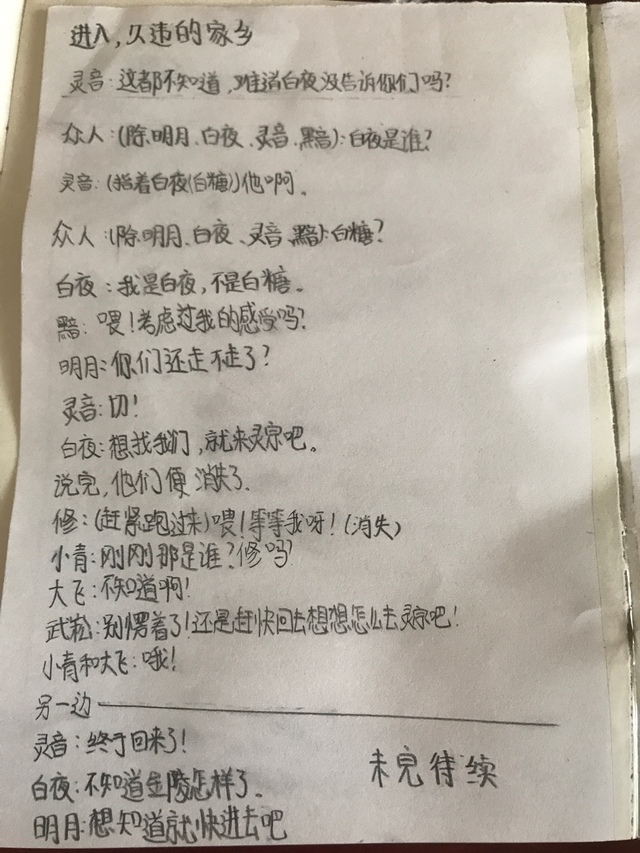 进入,久违的家乡
灵音:这都不知道,难道白夜没告诉你们吗?
众人:(除明月、白夜、灵音、黯):白夜是谁?
灵音:(指着白夜(白糖))他啊。
众人:(除明月、白夜、灵音、黯):白糖?
白夜:我是白夜,不是白糖。
黯:喂!考虑过我的感受吗?
明月:你们还走不走了?
灵音:切!
白夜:想找我们,就来灵宗吧。
说完,他们便消失了.
修:(赶紧跑过来)喂!等等我呀!(消失)
小青:刚刚那是谁?修吗?
大飞:不知道啊!
武崧:别愣着了!还是赶快回去想想怎么去灵宗吧!
小青和大飞:哦!
另一边
灵音:终于回来了!
白夜:不知道金陵怎样了.
明月:想知道就快进去吧
未完待续